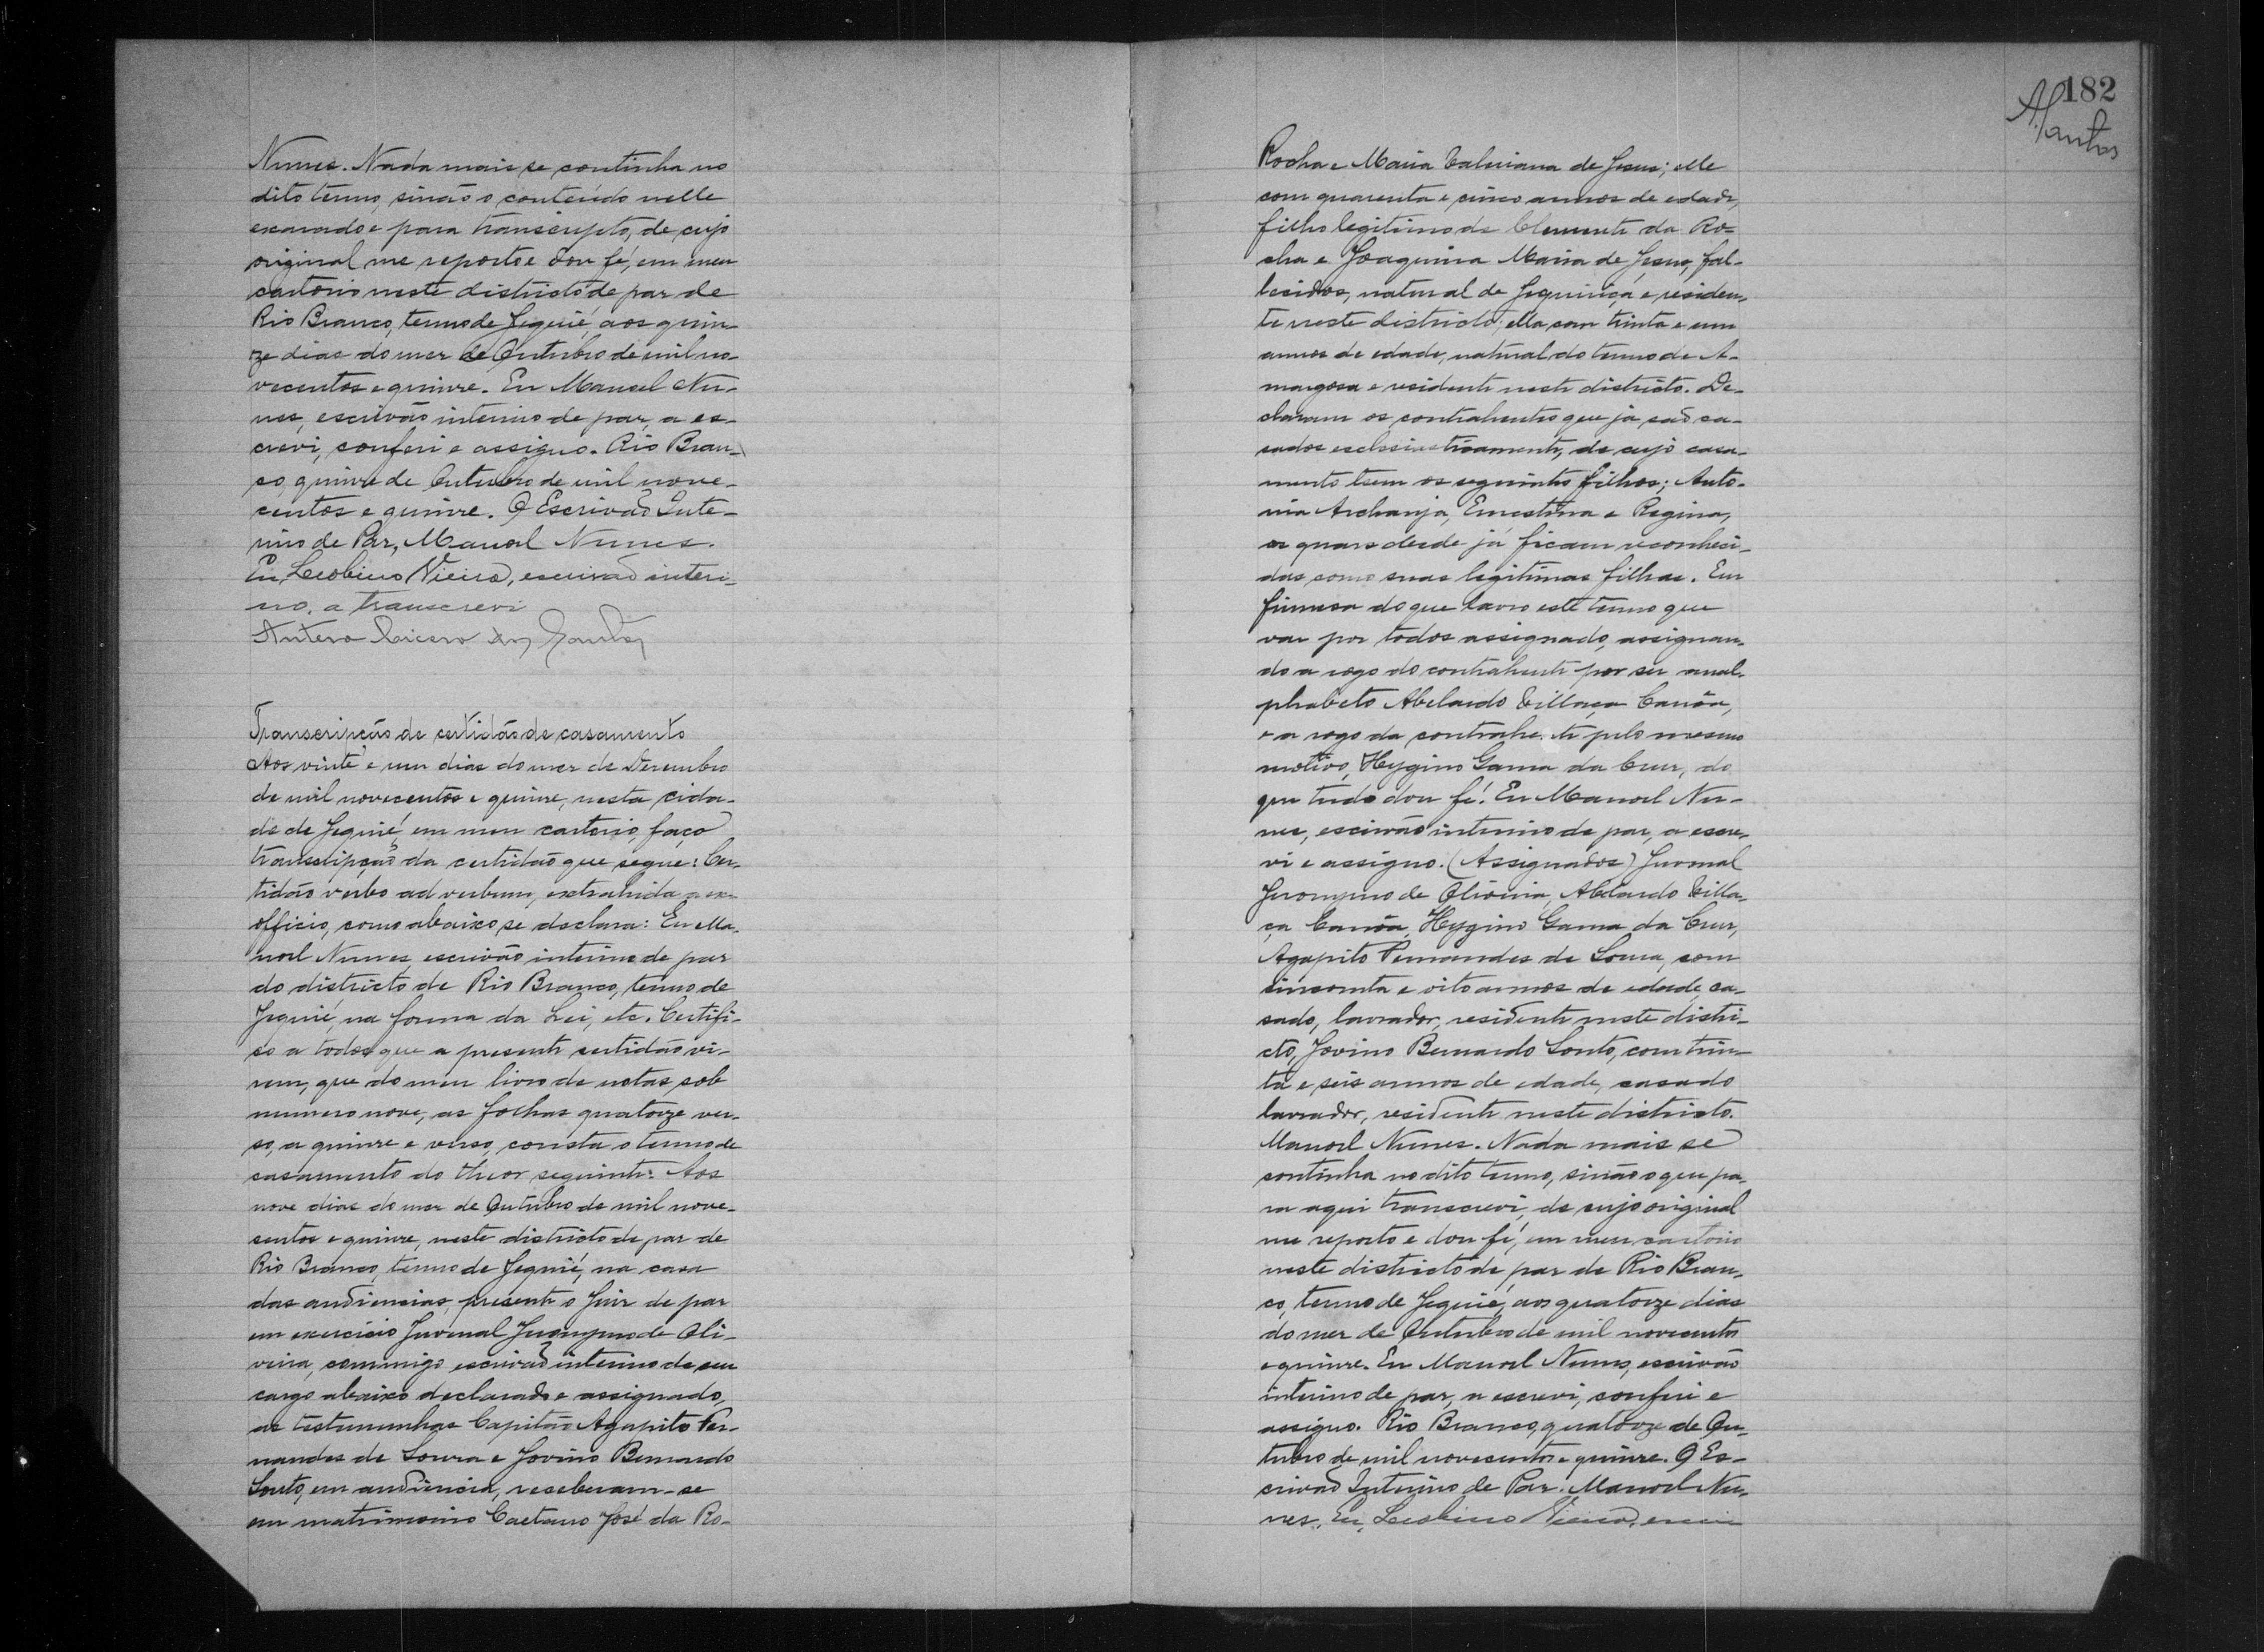 Nunes. Nada mais se continha no
dito termo, sinão o conteúdo nelle
exarado e para transcripto, de cujo
original me reporto e dou fé, em meu
cartorio neste districto de paz de
Rio Branco, termo de Jequié, aos quin-
ze dias do mez de Outubro de mil no-
vecentos e quinze. Eu Manoel Nu-
nes, escrivão interino de paz, a es-
crevi, conferi e assigno. Rio Bran-
co, quinze de Outubro de mil nove-
centos e quinze. O Escrivão Inte-
rino de Paz, Manoel Nunes.
Eu, Leobino Vieira, escrivão interi-
no, a transcrevi
Antero Cicero dos Santos
Transcripção de certidão de casamento
Aos vinte e um dias do mez de Dezembro
de mil novecentos e quinze, nesta cida-
de de Jequié, em meu cartorio, faço
transcripção da certidão que segue: Cer-
tidão verbo ad verbum, extrahida a ex-
officio, como abaixo se declara: Eu Ma-
noel Nunes, escrivão interino de paz
do districto de Rio Branco, termo de
Jequié, na forma da Lei, etc. Certifi-
co a todos que a presente certidão vi-
rem, que do meu livro de notas sob
numero nove, as folhas quatorze ver-
so, a quinze e verso, consta o termo de
casamento do theor seguinte: Aos
nove dias do mez de Outubro de mil nove-
centos e quinze, neste districto de paz de
Rio Branco, termo de Jequié, na casa
das audiencias, presente o Juiz de paz
em exercicio Juvenal Jeronymo de Oli-
veira, commigo escrivão interino de seu
cargo abaixo declarado e assignado,
as testemunhas Capitão Agapito Fer-
nandes de Souza e Jovino Bernardo
Souto, em audiencia, receberam-se
em matrimonio Caetano José da Ro-
182
ASantos
Rocha e Maria Valeriana de Jesus; elle
com quarenta e cinco annos de edade,
filho legitimo de Clemente da Ro-
cha e Joaquina Maria de Jesus, fal-
lecidos, natural de Jequiriçá e residen-
te neste districto; ella com trinta e um
annos de edade, natural do termo de A-
margosa e residente neste districto. De-
claram os contrahentes que já são ca-
sados ecclesiasticamente, de cujo casa-
mento teem os seguintes filhos; Anto-
nia Archanja, Ernestina e Regina,
as quaes desde já ficam reconheci-
das como suas legitimas filhas. Em
firmesa do que lavro este termo que
vae por todos assignado, assignan-
do a rogo do contrahente por ser anal-
phabeto Abelardo Villaça
e a rogo da contrahente pelo mesmo
motivo, Hygino Gama da Cruz, do
que tudo dou fé. Eu Manoel Nu-
nes, escrivão interino de paz, a escre-
vi e assigno. (Assignados) Juvenal
Jeronymo de Oliveira, Abelardo Villa-
ça Hygino Gama da Cruz,
Agapito Fernandes de Souza, com
cincoenta e oito annos de edade, ca-
sado, lavrador, residente neste distri-
cto, Jovino Bernardo Souto, com trin-
ta e seis annos de edade, casado
lavrador, residente neste districto.
Manoel Nunes. Nada mais se
continha no dito termo, sinão o que pa-
ra aqui transcrevi, de cujo original
me reporto e dou fé, em meu cartorio
neste districto de paz de Rio Bran-
co, termo de Jequié, aos quatorze dias
do mez de Outubro de mil novecentos
e quinze. Eu Manoel Nunes, escrivão
interino de paz, a escrevi, conferi e
assigno. Rio Branco, quatorze de Ou-
tubro de mil novecentos e quinze. O Es-
crivão Interino de Paz. Manoel Nu-
nes. Eu, Leobino Vieira, escri